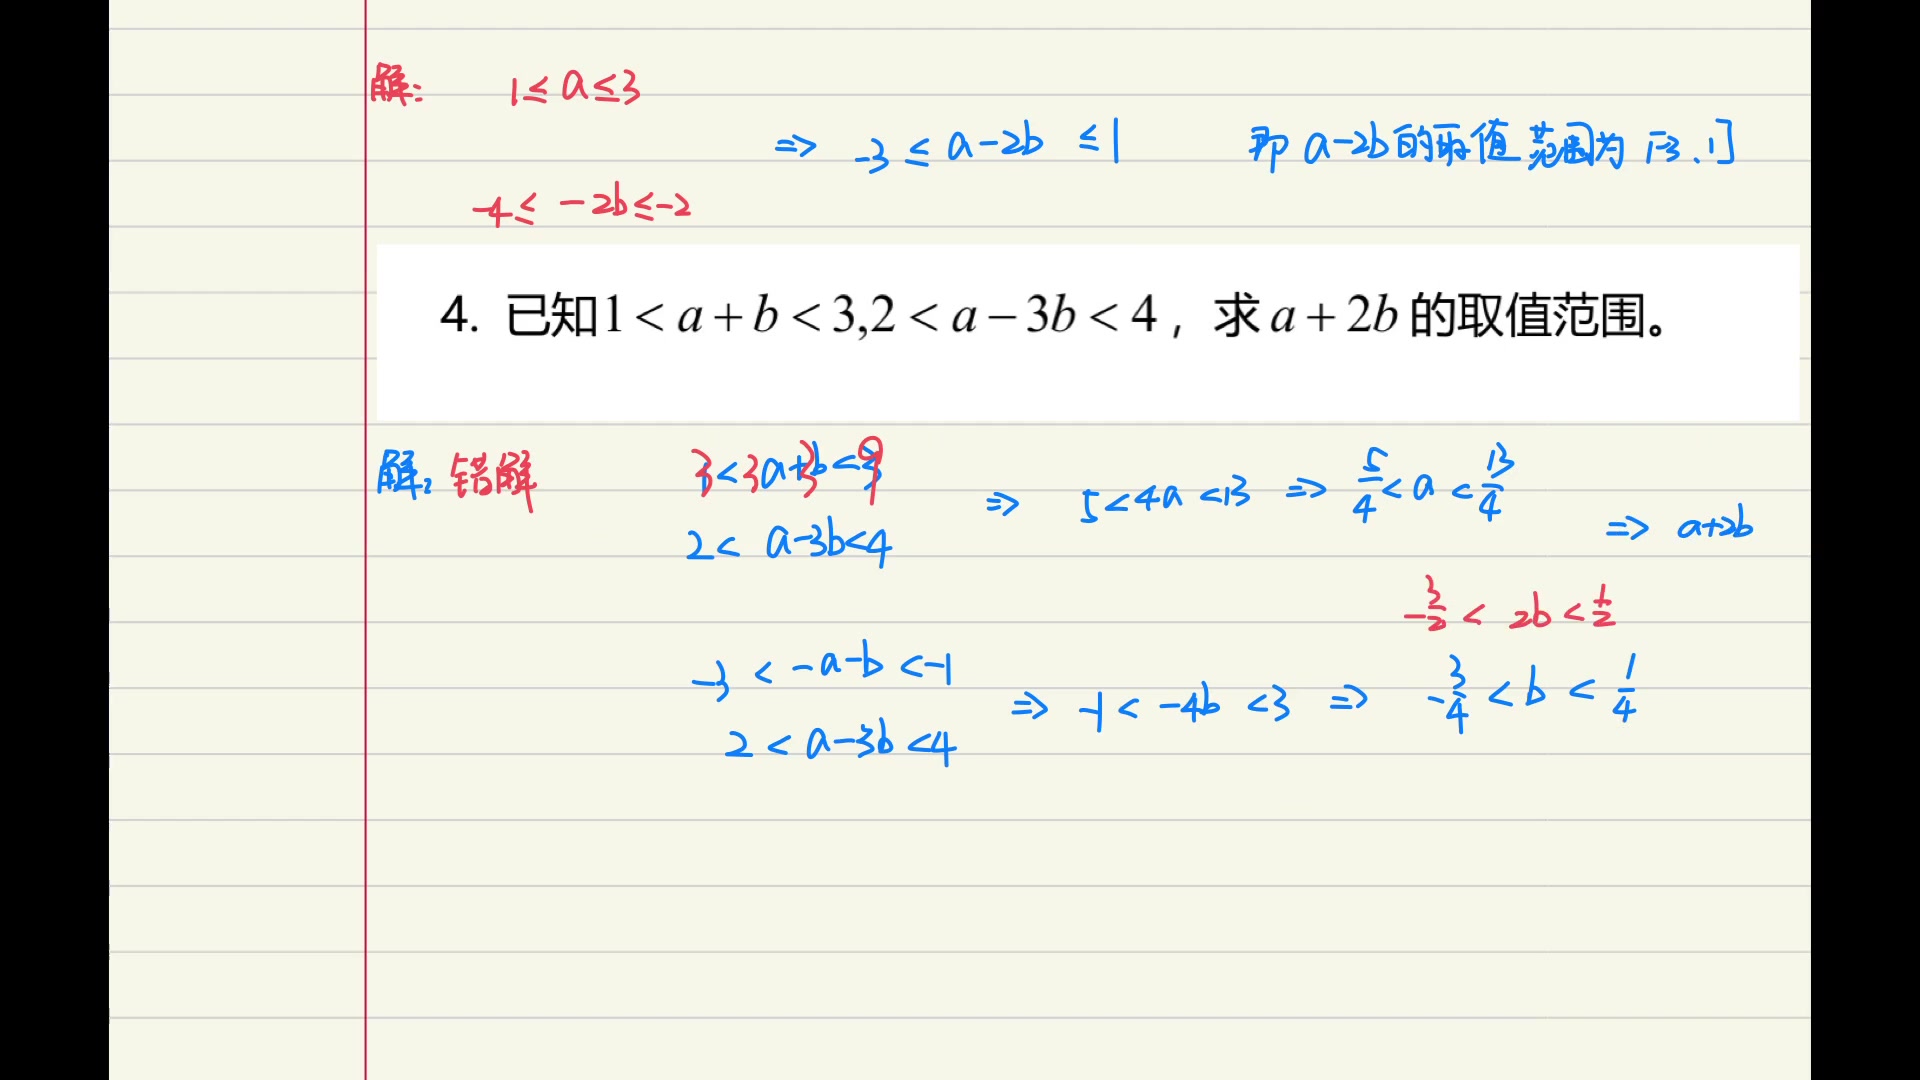 解: 1≤a≤3
⇒ -3≤a-2b≤1 即 a-2b的取值范围为[-3,1]
-4≤-2b≤-2
4. 已知1<a+b<3,2<a-3b<4，求a+2b的取值范围。
解: 错解 3<3a+3b<9
2<a-3b<4
⇒ 5<4a<13 ⇒ 5/4<a<13/4
⇒ a+2b
-3/2<2b<1/2
-3<-a-b<-1
2<a-3b<4
⇒ -1<-4b<3 ⇒ -3/4<b<1/4